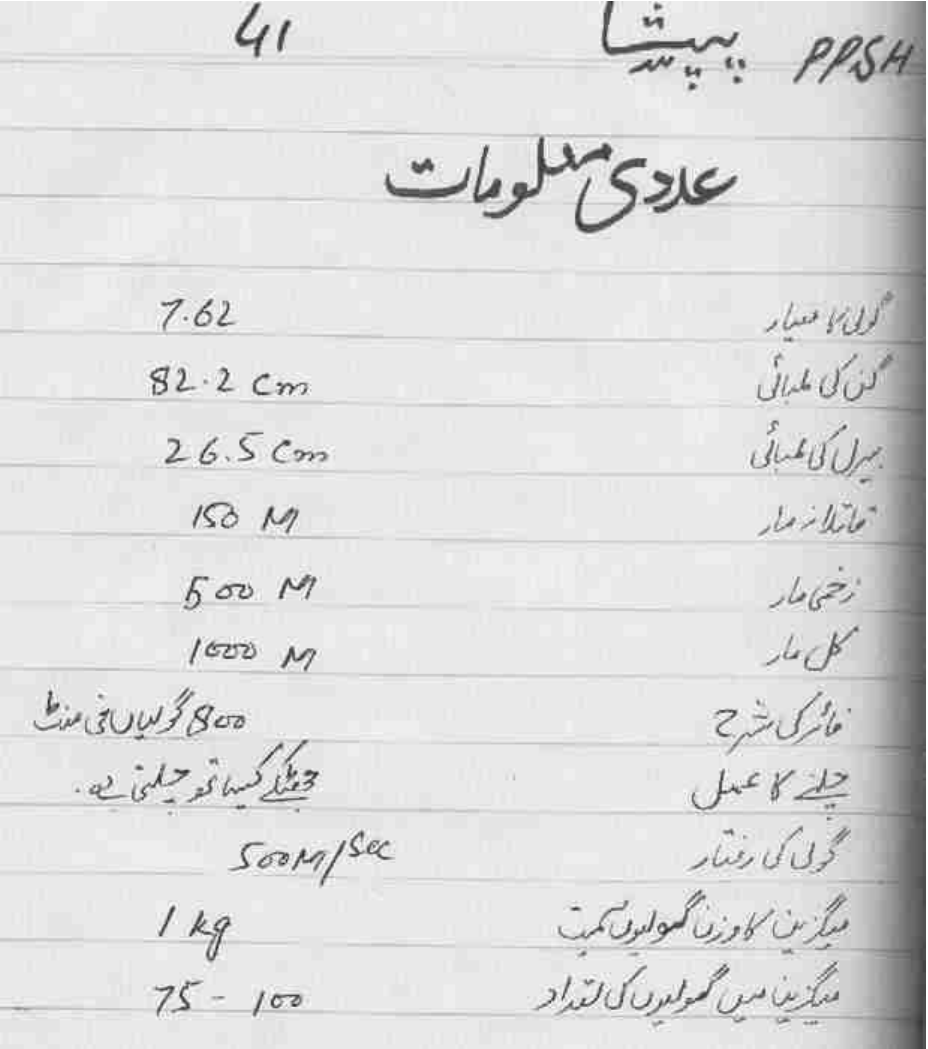 PPSH پیپشا 41
عددی معلومات
گولی کا معیار 7.62
گن کی لمبائی 82.2 Cm
بیرل کی لمبائی 26.5 Cm
قاتلانہ مار 150 M
زخمی مار 500 M
کل مار 1000 M
فائر کی شرح 800 گولیاں فی منٹ
چلنے کا عمل جھٹکے کیساتھ چلتی ہے.
گولی کی رفتار 500M/Sec
میگزین کا وزن گھولیوں سمیت 1 kg
میگزین میں گھولیوں کی تعداد 75 - 100